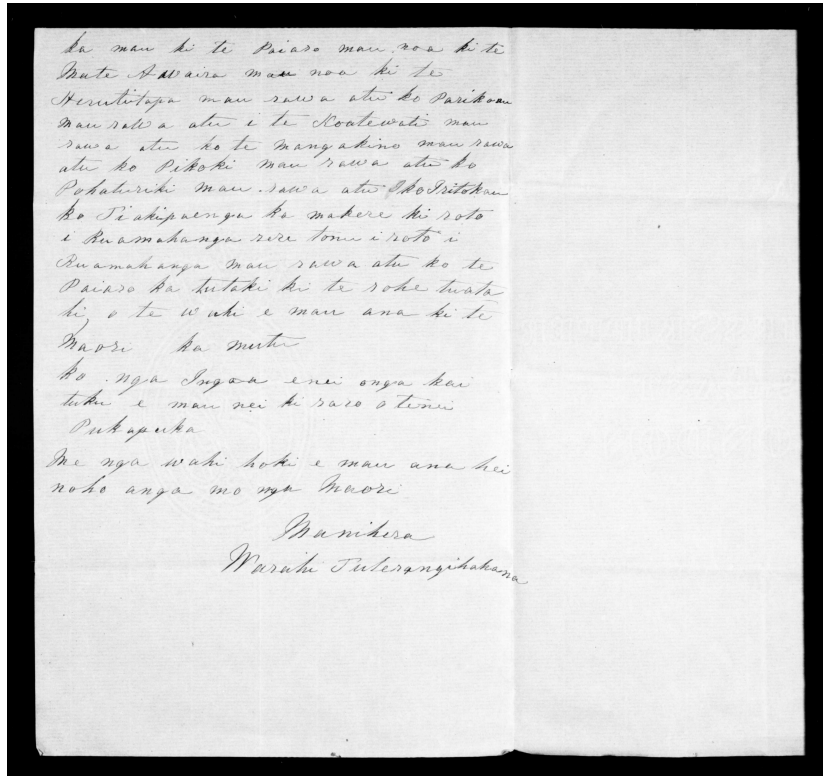 ka mau ki te Paiaro mau noa ki te
Mate Awaira mau noa ki te
Herutitapa mau rawa atu ko Parikoau
mau rawa atu i te Koatewati mau
rawa atu ko te Mangakino mau rawa
atu ko Pikoki mau rawa atu ko
Pohaturiki mau rawa atu
ko Tiakipaenga ka makere ki roto
i Ruamahanga rere tonu i roto i
Ruamahanga mau rawa atu ko te
Paiaro ka tutaki ki te rohe tuata
hi, o te wahi e mau ana ki te
Maori ka mutu
ko nga Ingoa enei onga kai
tuku e mau nei ki raro o tenei
Pukapuka
Me nga wahi hoki e mau ana hei
noho anga mo nga Maori
Manihera